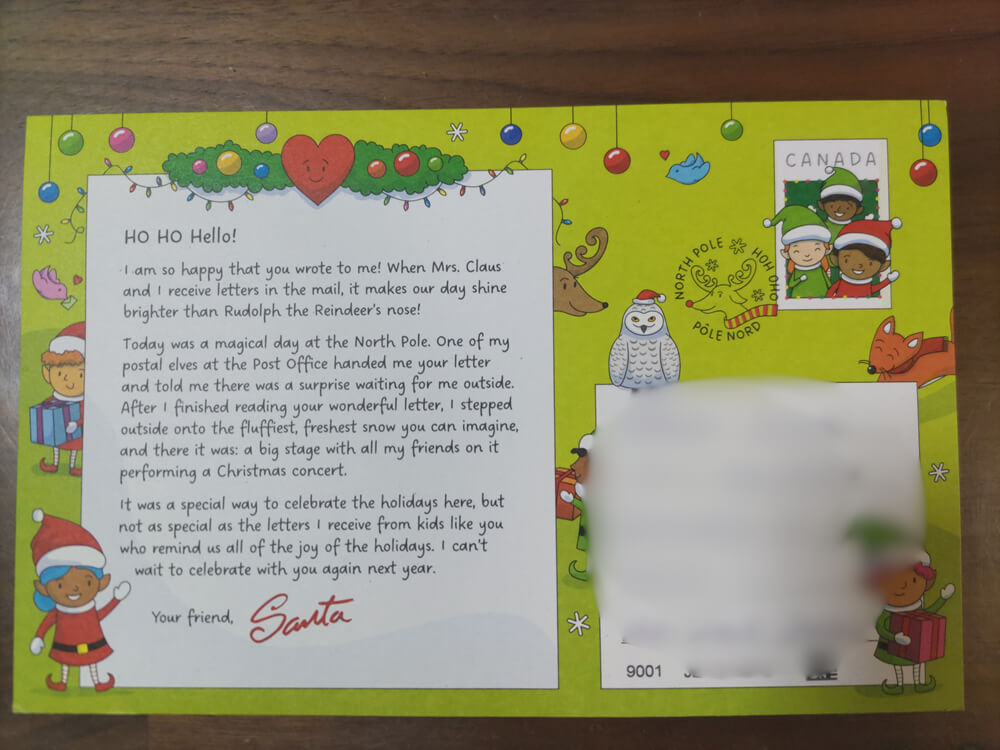 HO HO Hello!
I am so happy that you wrote to me! When Mrs. Claus
and I receive letters in the mail, it makes our day shine
brighter than Rudolph the Reindeer's nose!
Today was a magical day at the North Pole. One of my
postal elves at the Post Office handed me your letter
and told me there was a surprise waiting for me outside.
After I finished reading your wonderful letter, I stepped
outside onto the fluffiest, freshest snow you can imagine,
and there it was: a big stage with all my friends on it
performing a Christmas concert.
It was a special way to celebrate the holidays here, but
not as special as the letters I receive from kids like you
who remind us all of the joy of the holidays. I can't
wait to celebrate with you again next year.
Your friend, Santa
CANADA
NORTH POLE
HOH OHO
PÔLE NORD
9001